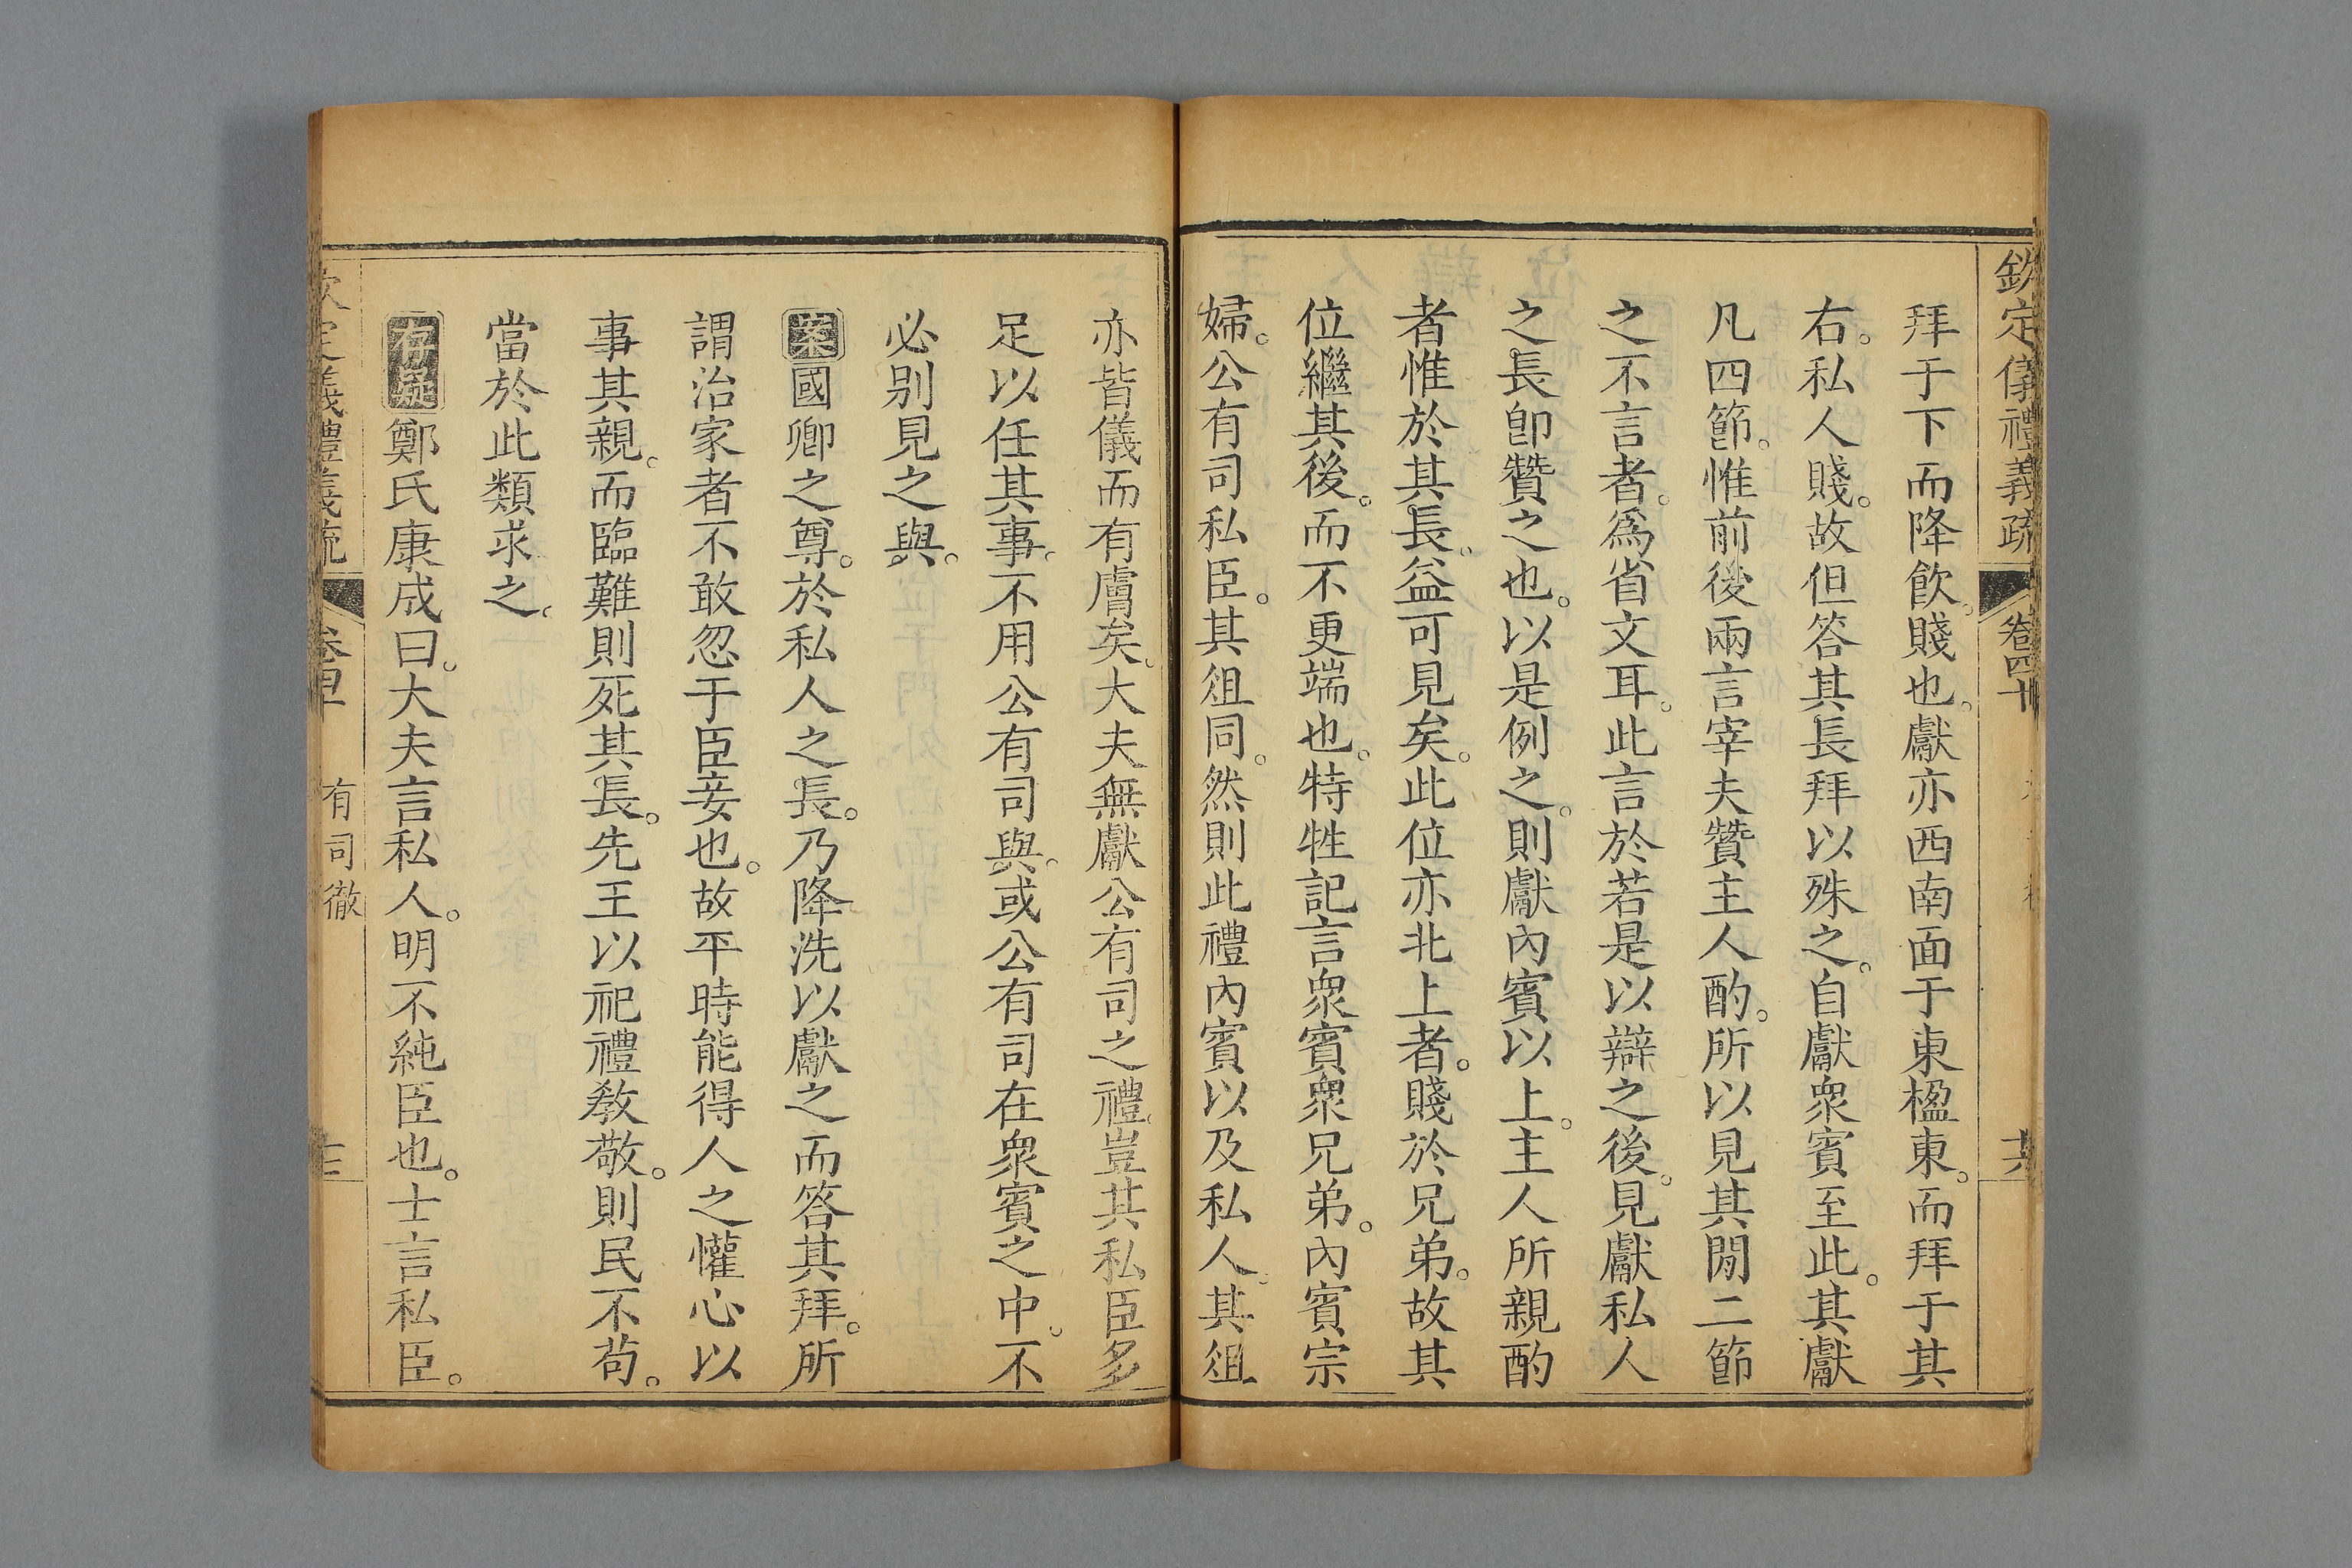 欽定儀禮義疏 卷四十
拜于下而降飲。賤也。獻亦西南面于東楹東。而拜于其
右。私人賤。故但答其長拜以殊之。自獻衆賓至此。其獻
凡四節。惟前後兩言宰夫贊主人酌。所以見其閒二節
之不言者。爲省文耳。此言於若是以辯之後。見獻私人
之長卽贊之也。以是例之。則獻內賓以上。主人所親酌
者惟於其長。益可見矣。此位亦北上者。賤於兄弟。故其
位繼其後。而不更端也。特牲記言衆賓衆兄弟。內賓宗
婦。公有司私臣。其俎同。然則此禮內賓以及私人。其俎
亦皆儀而有膚矣。大夫無獻公有司之禮。豈其私臣多
足以任其事。不用公有司與。或公有司在衆賓之中。不
必別見之與。
案國卿之尊。於私人之長。乃降洗以獻之而答其拜。所
謂治家者不敢忽于臣妾也。故平時能得人之懽心以
事其親。而臨難則死其長。先王以祀禮敎敬。則民不苟。
當於此類求之。
存疑鄭氏康成曰。大夫言私人。明不純臣也。士言私臣。
定儀禮義疏 有司徹